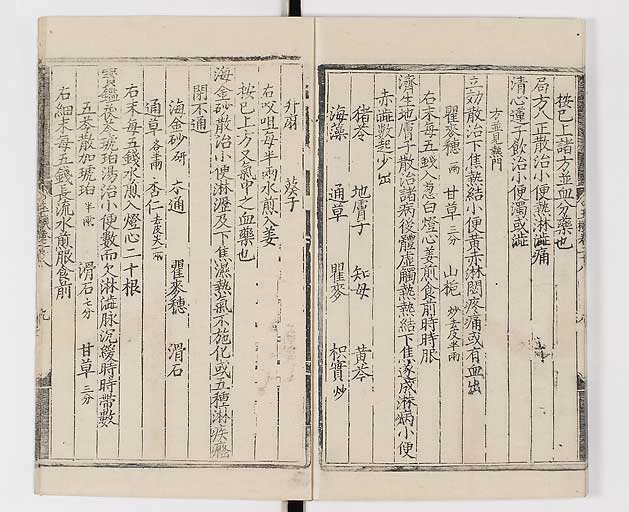 按已上諸方並血分藥也
局方八正散治小便熱淋澁痛
清心蓮子飲治小便濁或澁
方並見熱門
立効散治下焦熱結小便黃赤淋閉疼痛或有血出
瞿麥穗一兩 甘草三分 山梔炒去皮半兩
右末每五錢入葱白燈心姜煎食前時時服
濟生地膚子散治諸病後體虛觸熱熱結下焦遂成淋病小便
赤澁數起少出
猪苓 地膚子 知母 黃芩
海藻 通草 瞿麥 枳實炒
升麻 葵子
右㕮咀每半兩水煎入姜
按已上方又氣中之血藥也
海金砂散治小便淋瀝及下焦濕熱氣不施化或五種淋疾癃
閉不通
海金砂研 木通 瞿麥穗 滑石
通草各半兩 杏仁去皮尖一兩
右末每五錢水煎入燈心二十根
寶鑑茯苓琥珀湯治小便數而欠淋澁脉沉緩時時帶數
五苓散加琥珀半兩 滑石七分 甘草三分
右細末每五錢長流水煎服食前